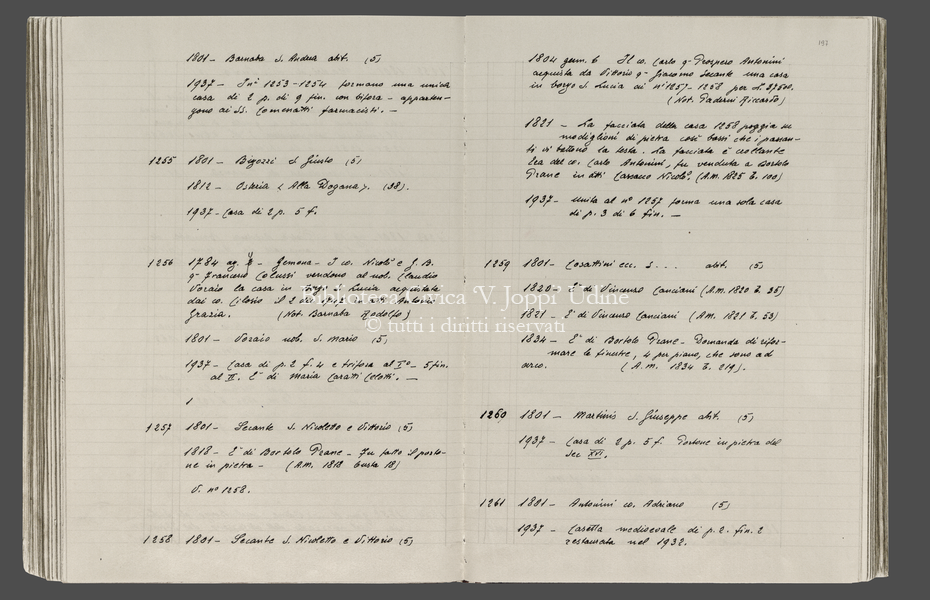 1801 - Barnaba S. Andrea abit. (5)
1937 - In° 1253-1254 formano una unica
casa di 2 p. di 9 fin. con bifora - apparten-
gono ai SS. Comenatti farmacisti. -
1255 1801 - Bigozzi S. Giusto (5)
1812 - Osteria « Alla Dogana ». (38).
1937 - Casa di 2 p. 5 f.
1256 1784 ag. - Gemona - I co. Nicolò e G. B.
q- Francesco Colussi vendono al nob. Claudio
Vorajo la casa in borgo S. Lucia acquistata
dai co. Antonio
Grazia. (Not. Barnaba Rodolfo)
1801 - Vorajo nob. S. Mario (5)
1937 - Casa di p. 2 f. 4 e trifora al I° - 5 fin.
al II. E' di Maria Caratti Celotti. -
1257 1801 - Secante S. Nicoletto e Vittorio (5)
1818 - E' di Bortolo Prane - Fu fatto il porto-
ne in pietra - (A.M. 1818 busta 18)
V. n° 1258.
1258 1801 - Secante S. Nicoletto e Vittorio (5)
197
1804 genn. 6 Il co. Carlo q- Prospero Antonini
acquista da Vittorio q- Giacomo Secante una casa
in borgo S. Lucia ai n° 1257-1258 per L.
(Not. Paderni Riccardo)
1821 - La facciata della casa 1258 poggia su
modiglioni di pietra così bassi che i passan-
ti vi battono la testa. La facciata è crollante
Era del co. Carlo Antonini, fu venduta a Bortolo
Prane in ditti Cassano Nicolò. (A.M. 1825 E. 100)
1937 - Unita al n° 1257 forma una sola casa
di p. 3 di 6 fin. -
1259 1801 - Cosattini ecc. S. . . . abit. (5)
1820 - E' di Vincenzo Canciani (A.M. 1820 E. 35)
1821 - E' di Vincenzo Canciani (A.M. 1821 E. 53)
1834 - E' di Bortolo Prane - Domanda di rifor-
mare le finestre, 4 per piano, che sono ad
arco. (A.M. 1834 E. 219).
1260 1801 - Martinis S. Giuseppe abit. (5)
1937 - Casa di 2 p. 5 f. Portone in pietra del
sec XVI.
1261 1801 - Antonini co. Adriano (5)
1937 - Casetta medioevale di p. 2. fin. 2
restaurata nel 1932.
Biblioteca Civica 'V. Joppi' Udine
© tutti i diritti riservati